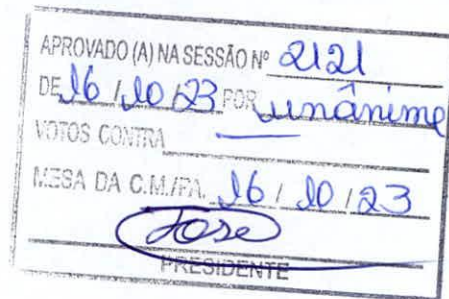 APROVADO (A) NA SESSÃO Nº 2121
DE 16 / 10 / 23 POR unânime
VOTOS CONTRA
MESA DA C.M./PA. 16 / 10 / 23
Jose
PRESIDENTE